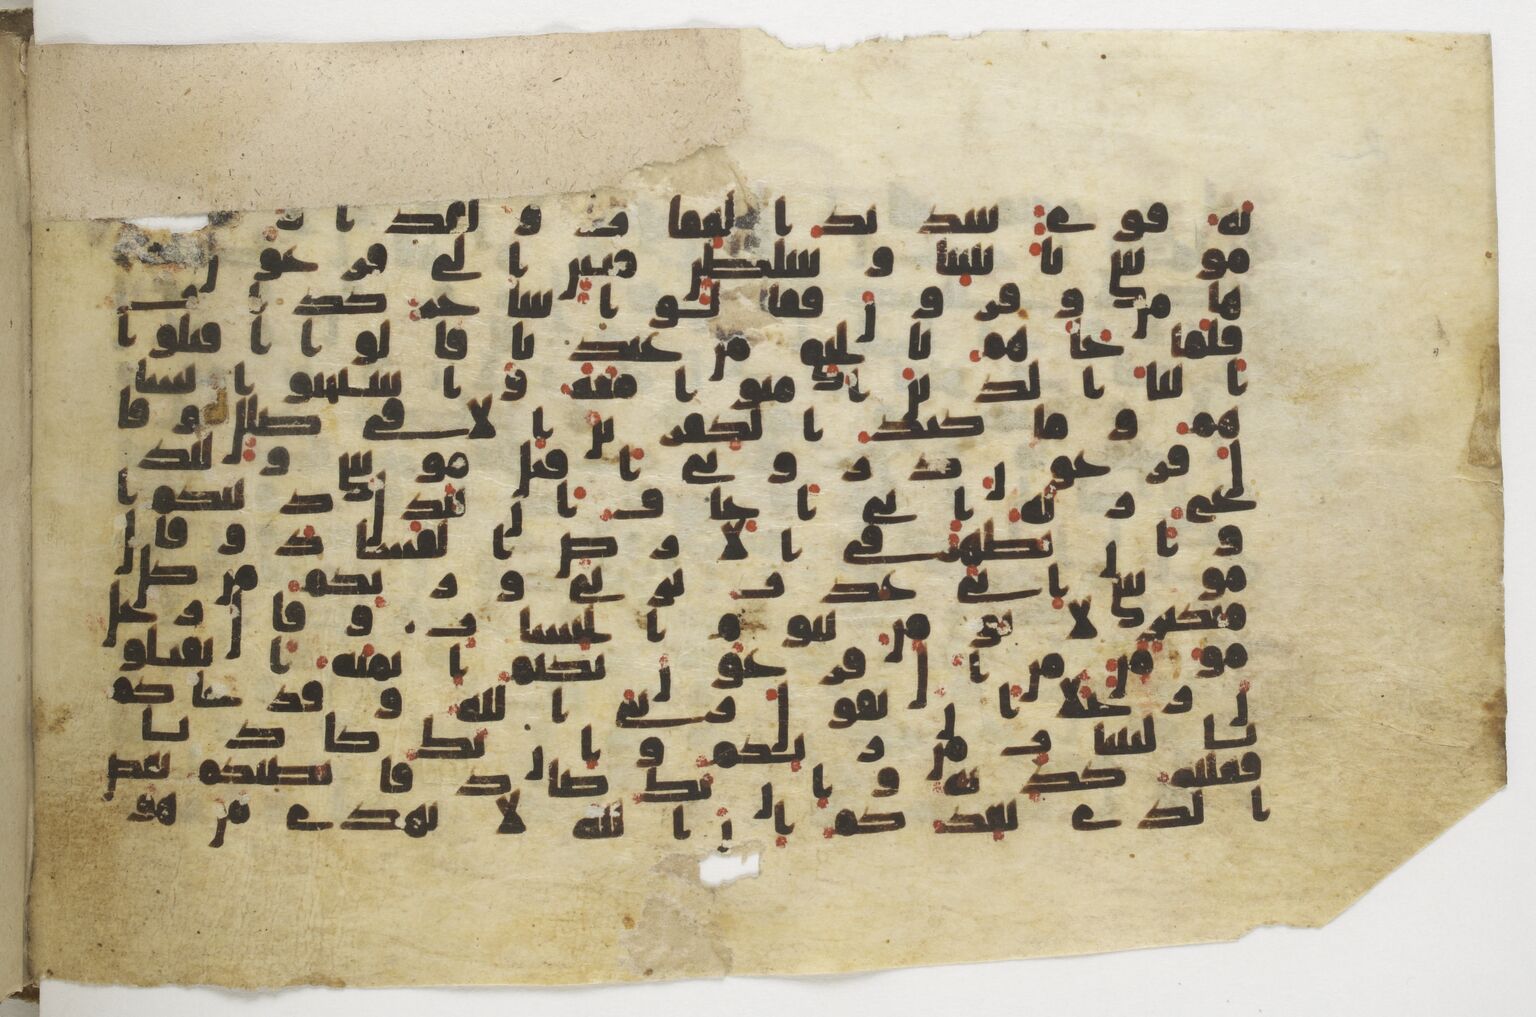 نه قوى شديد العقاب ولقد ا ر
موسى بايتنا وسلطن مبين الى فرعون
هامن وقرون فقالوا سحر كذاب
فلما جاهم بالحق من عندنا قالوا اقتلوا
ابنا الذين امنوا معه واستحيوا نسا
هم وما كيد الكفرين الا فى ضلل وقا
ل فرعون ذرونى اقتل موسى وليد
ع ربه انى اخاف ان يبدل دينكم ا
و ان يظهر فى الارض الفساد وقال
موسى انى عذت بربى وربكم من كل
متكبر لا يومن بيوم الحساب وقال رجل
مومن من ال فرعون يكتم ايمنه اتقتلو
ن رجلا ان يقول ربى الله وقد جاكم
بالبينت من ربكم وان يك كاذبا
فعليه كذبه وان يك صادقا يصبكم بعض
الذى يعدكم ان الله لا يهدى من هو